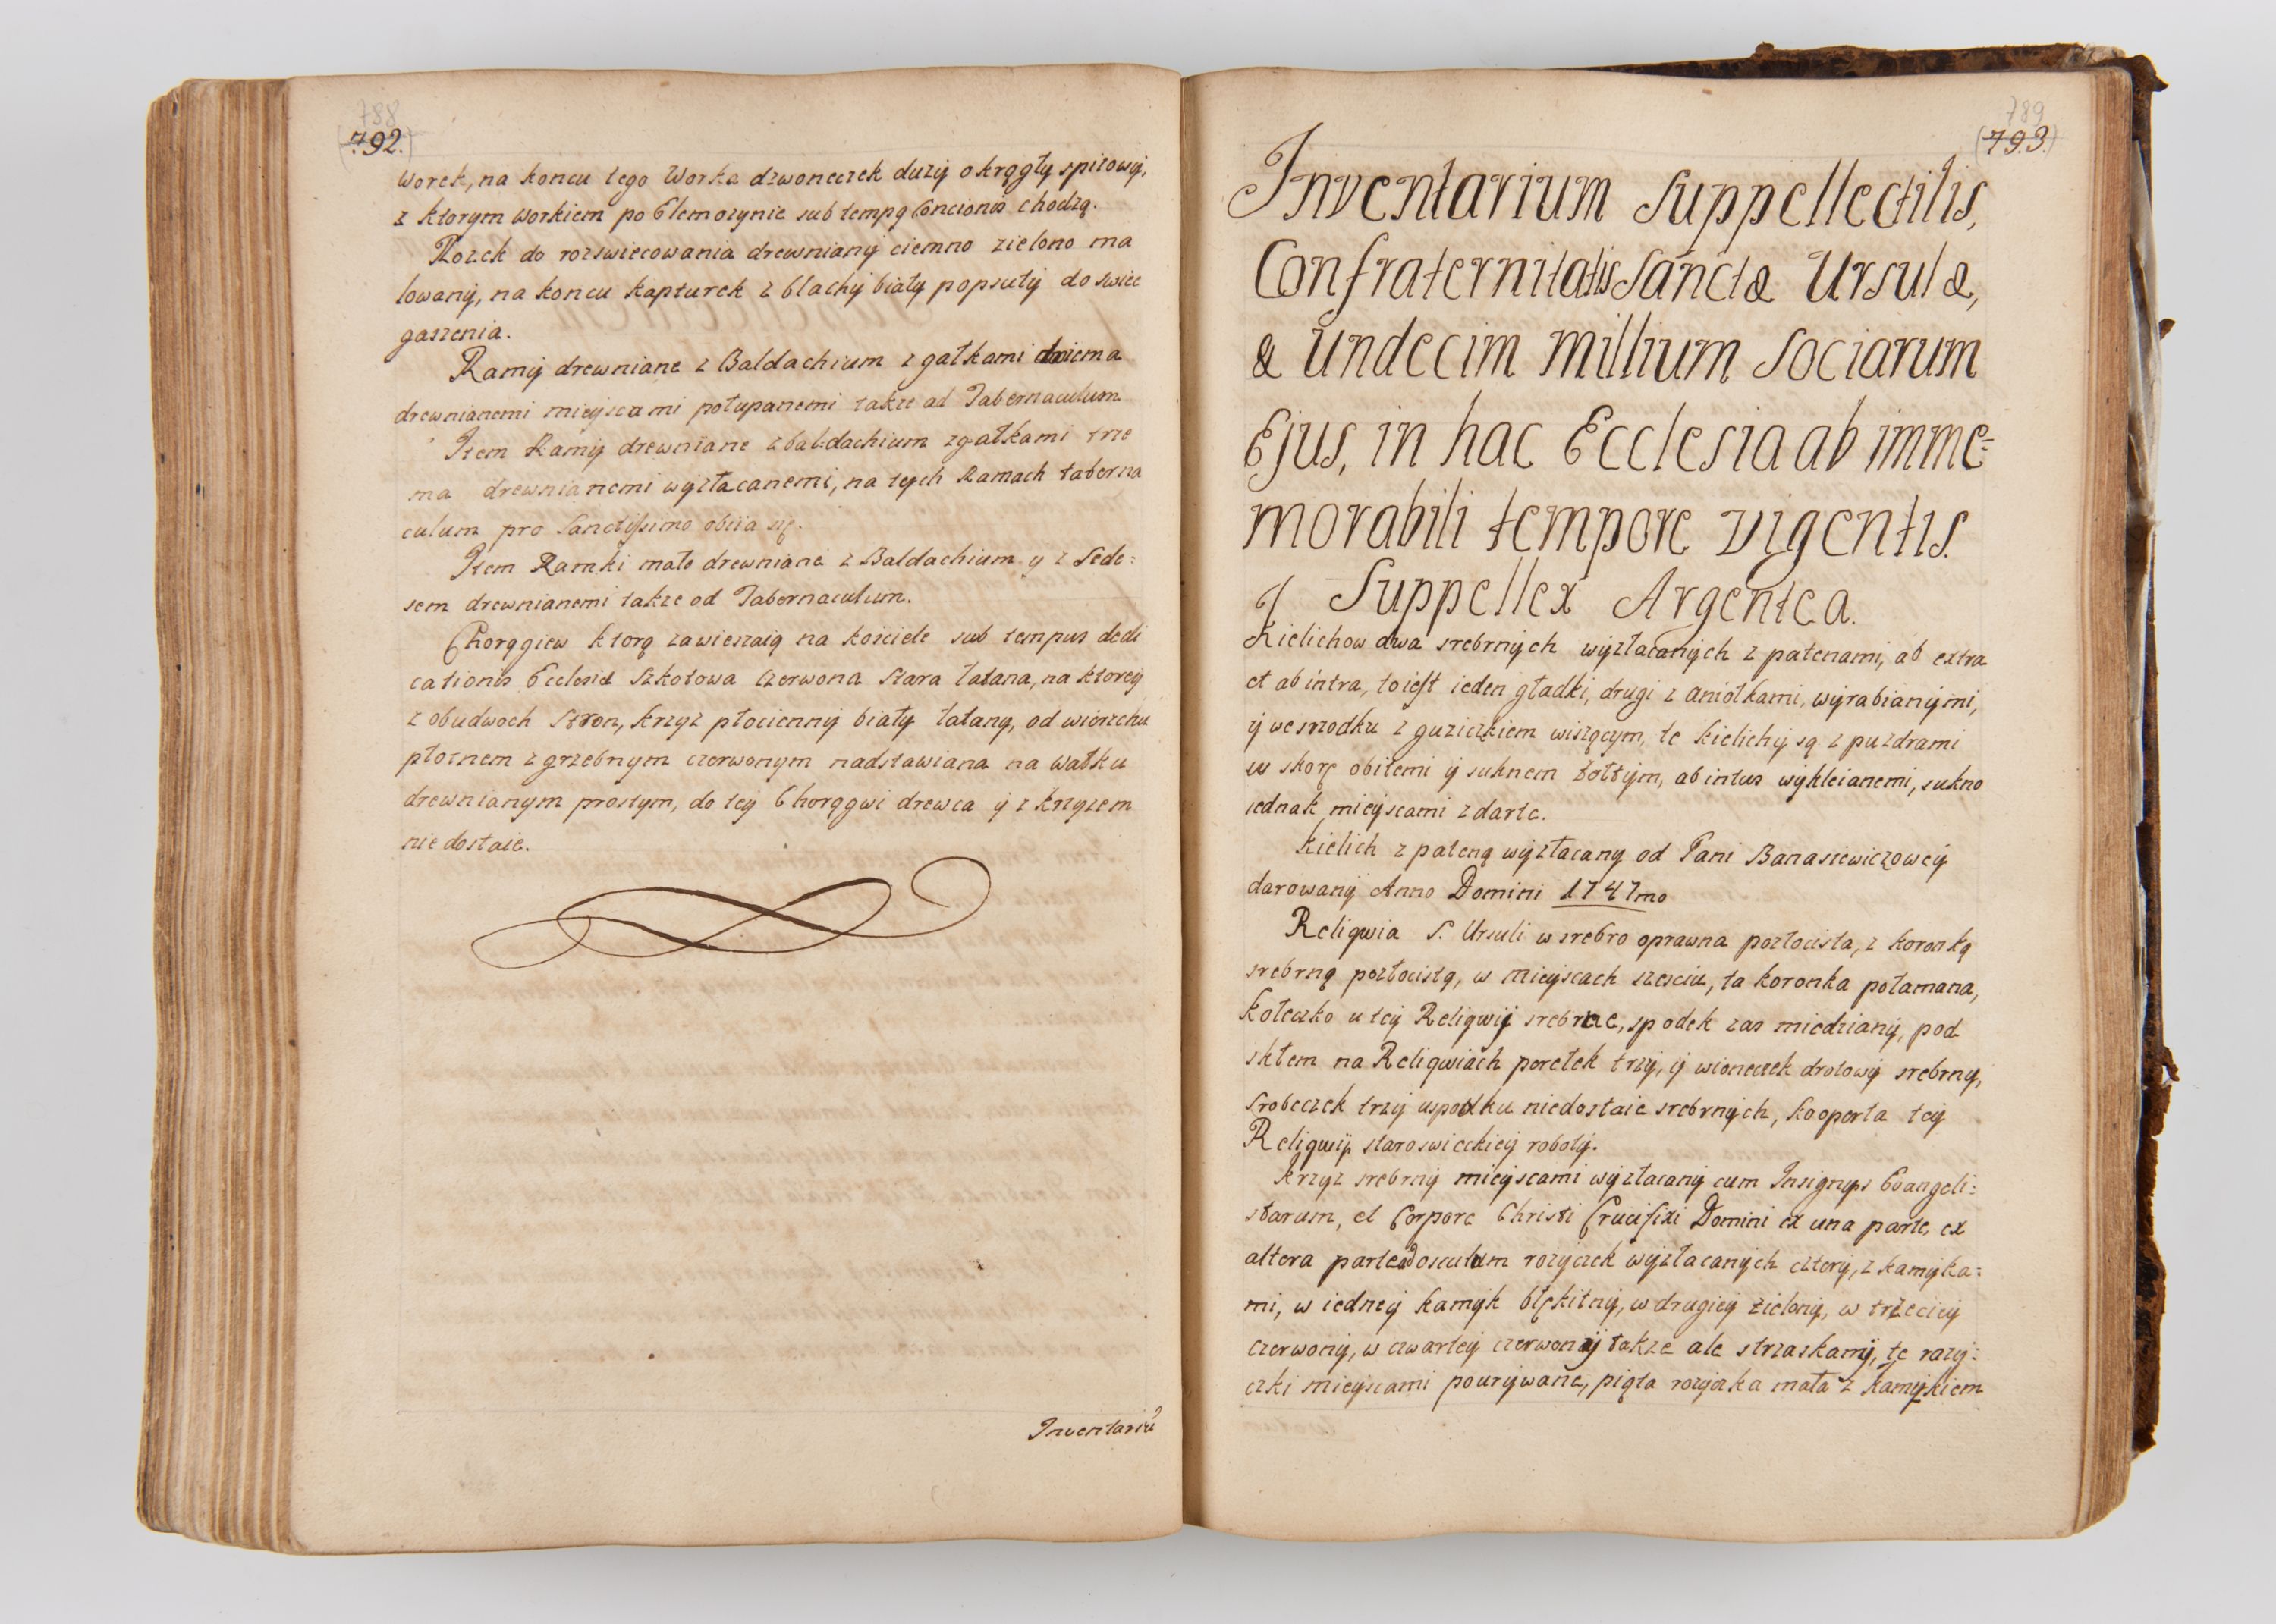 788
(792.)
Worek, na koncu tego Worka dzwoneczek duzÿ okrągły spizowÿ,
z ktorym workiem po Elemozynie sub tempą Concionis chodzą.
Rozek do rozswiecowania drewnianÿ ciemno zielono ma
lowanÿ, na koncu kapturek z blachÿ białÿ popsutÿ do swiec
gaszenia.
Ramÿ drewniane z Baldachium z gałkami dwiema
drewnianemi mieÿscami połupanemi także ad Tabernaculum
Item Ramÿ drewniane z baldachium z gałkami trze
ma drewnianemi wÿzłacanemi, na tÿch Ramach taberna
culum pro Sanctissimo obiia się.
Item Ramki małe drewniane z Baldachium y z Sede=
sem drewnianemi takze od Tabernaculum.
Chorągiew ktorą zawieszaią na kościele sub tempus dedi
cationis Ecclesiæ Szkotowa Czerwona Stara łatana, na ktoreÿ
z obudwoch Stron, krzyz płociennÿ biały łatany, od wierzchu
płotnem zgrzebnym czerwonym nadstawiana na wałku
drewnianym prostym, do teÿ Chorągwi drewca ÿ z krzyzem
nie dostaie.
Inventariũ
789
(793.)
Inventarium Suppellectilis,
Confraternitatis Sanctæ Ursulæ,
& Undecim Millium Sociarum
Ejus, in hac Ecclesia ab imme=
morabili tempore vigentis.
Suppellex Argentea.
Kielichow dwa srebrnÿch wÿzłacanÿch z patenami, ab extra
et ab intra, toiest ieden gładki, drugi z aniołkami, wÿrabianÿmi,
ÿ we srzodku z guziczkiem wiszącym, te kielichÿ są z puzdrami
w skorę obitemi ÿ suknem żołtÿm, ab intus wÿkleianemi, sukno
iednak mieÿscami zdarte.
Kielich z pateną wÿzłacany od Pani Banasiewiczoweÿ
darowanÿ Anno Domini 1747mo
Reliqwia S. Ursuli w srebro oprawna pozłocista, z koronką
srebrną pozłocistą, w mieÿscach szesciu, ta koronka połamana,
Kołeczko u teÿ Reliqwiÿ srebrne, spodek zas miedzianÿ, pod
skłem na Reliqwiach perełek trzÿ, ÿ wioneczek drotowÿ srebrny,
Srobeczek trzÿ uspodku niedostaie srebrnÿch, kooperta teÿ
Reliqwiÿ staroswieckieÿ robotÿ.
Krzyz srebrnÿ mieÿscami wÿzłacanÿ cum Insignÿs Evangeli=
starum, et Corpore Christi Crucifixi Domini ex una parte, ex
altera parte ad osculum rozyczek wÿzłacanÿch czterÿ, z kamÿka=
mi, w iedneÿ kamÿk błękitnÿ, w drugieÿ zielonÿ, w trzecieÿ
czerwonÿ, w czwarteÿ czerwonÿ takze ale strzaskanÿ, te rozÿ=
czki mieÿscami pourÿwane, piąta rozÿczka mała z kamÿkiem